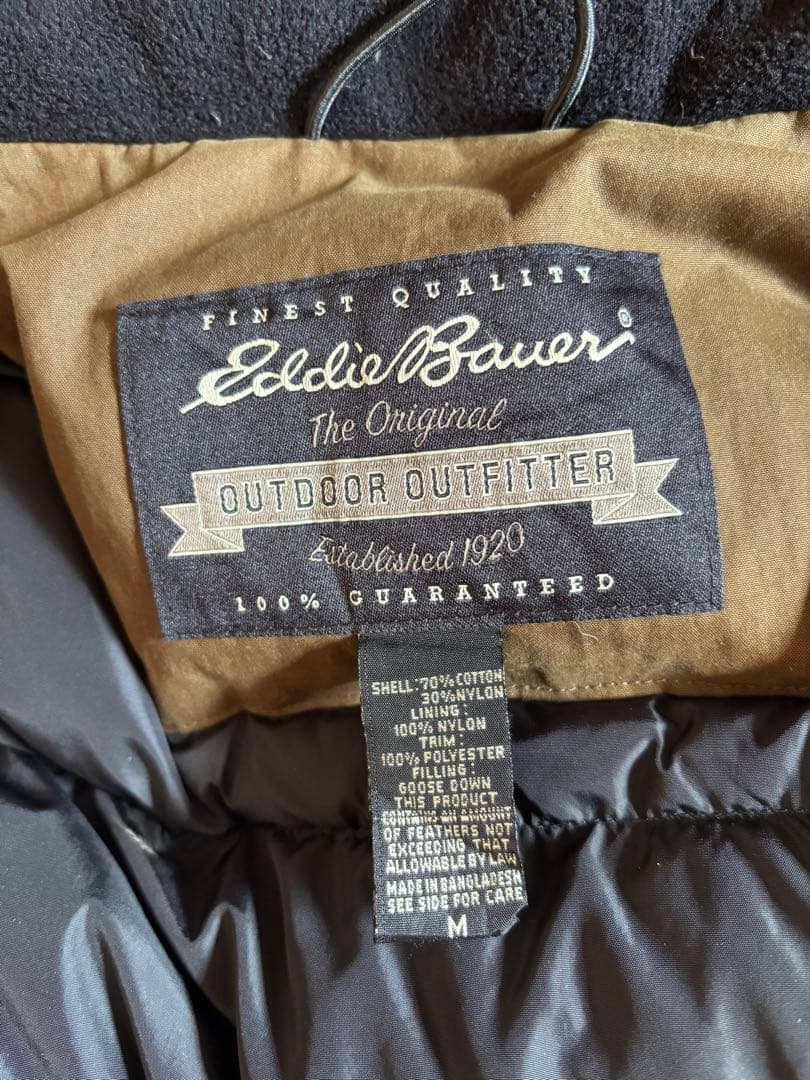 FINEST QUALITY
Eddie Bauer®
The Original
OUTDOOR OUTFITTER
Established 1920
100% GUARANTEED
SHELL: 70% COTTON
30% NYLON
LINING:
100% NYLON
TRIM:
100% POLYESTER
FILLING:
GOOSE DOWN
THIS PRODUCT
CONTAINS AN AMOUNT
OF FEATHERS NOT
EXCEEDING THAT
ALLOWABLE BY LAW
MADE IN BANGLADESH
SEE SIDE FOR CARE
M